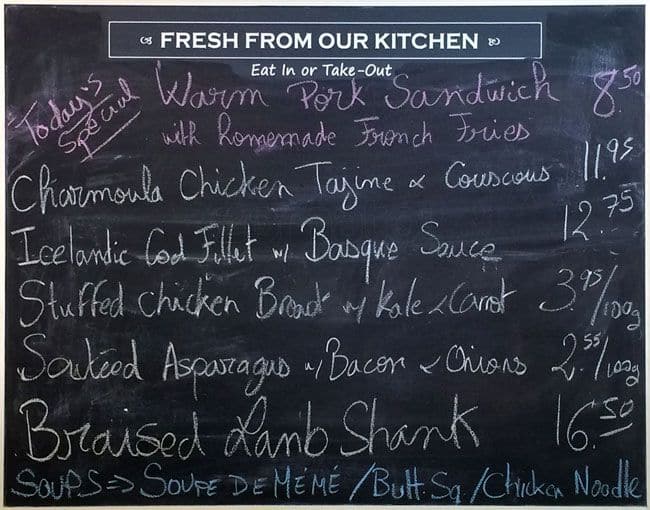 FRESH FROM OUR KITCHEN
Eat In or Take-Out
Today's Special
Warm Pork Sandwich 8.50
with homemade French Fries
Charmoula Chicken Tajine & Couscous 11.95
Icelandic Cod Fillet w/ Basque Sauce 12.75
Stuffed Chicken Breast w/ Kale & Carrot 3.95/100g
Sautéed Asparagus w/ Bacon & Onions 2.55/100g
Braised Lamb Shank 16.50
SOUPS => SOUPE DE MÉMÉ / Butt. Sq / Chicken Noodle